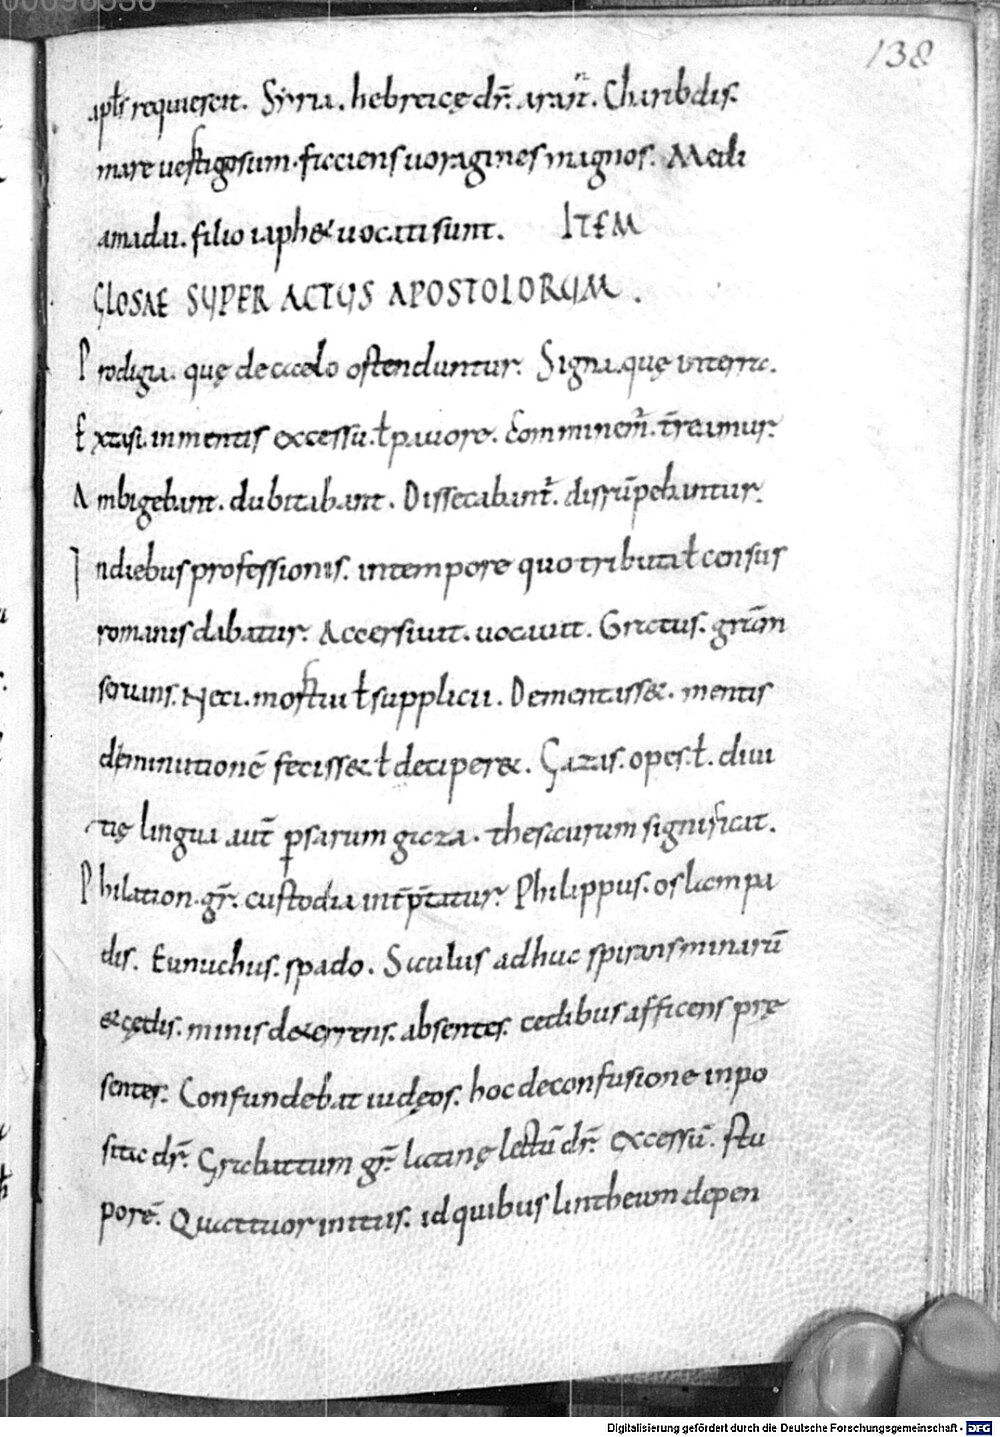 00096536
138
apłs requiescit. Syria. hebreicę dr̄. aram. Charibdis.
mare uestigosum. faciens uoragines magnos. Medi
amadai. filio iaphet uocati sunt. ITEM
GLOSAE SUPER ACTUS APOSTOLORUM.
Prodigia. quę de caelo ostenduntur. Signa. quę interra.
Extasi. inmentis excessu. ł pauore. Comminem̄. t̄reamur.
Ambigebant. dubitabant. Dissecabant̄. disrūpebantur.
Indiebus professionis. intempore quo tributa ł census
romanis dabatur. Accersiuit. uocauit. Grecus. grām
seruans. Neci. mortui ł supplicii. Dementasset. mentis
deminutionē fecisset ł deciperet. Gazas. opes. ł. diui
tię lingua aut̄ psarum gaza. thesaurum significat.
Philation. gr̄. custodia int̄p̄tatur. Philippus. os lampa
dis. Eunuchus. spado. Saulus adhuc spirans minarū
et cędis. minis deterrens. absentes. cedibus afficens prę
sentes. Confundebat iudęos. hoc deconfusione inpo
sitae dr̄. Grabattum gr̄. latinę lectū dr̄. excessū. stu
porē. Quattuor initiis. id quibus lintheum depen
Digitalisierung gefördert durch die Deutsche Forschungsgemeinschaft - DFG